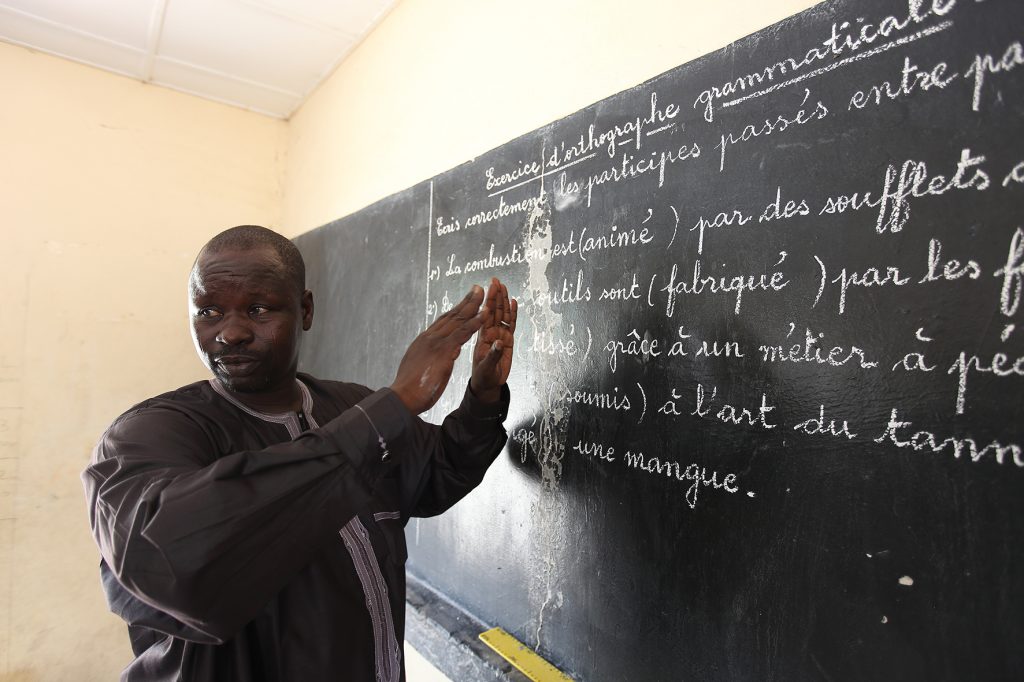 Exercice d'orthographe grammaticale
Ecris correctement les participes passés entre
1) La combustion est (animé) par des soufflets
outils sont (fabriqué) par les
(tissé) grâce à un métier à
(soumis) à l'art du
une mangue.